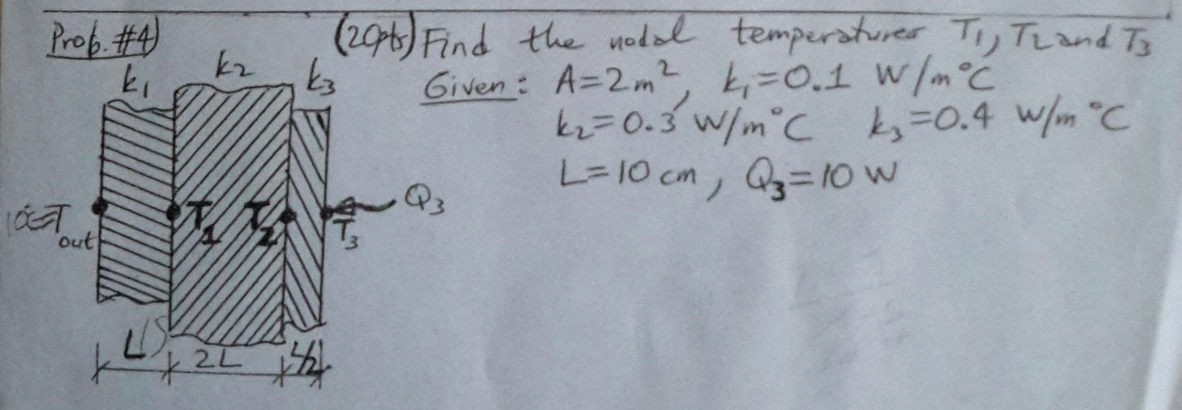 Prob. #4) (20pts) Find the nodal temperatures T1, T2 and T3
Given: A=2m², k1=0.1 W/m°C
k2=0.3 W/m°C k3=0.4 W/m°C
L=10 cm, Q3=10 W
k1 k2 k3
=Tout T1 T2 T3 Q3
L 2L L/2